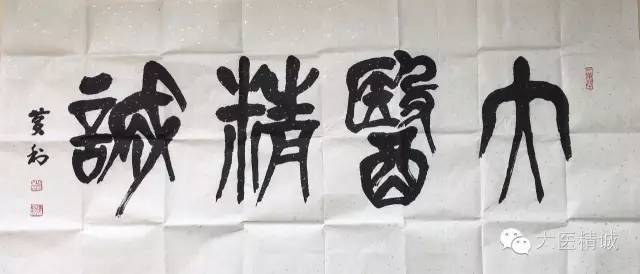 大醫精誠
黄利
大医精诚